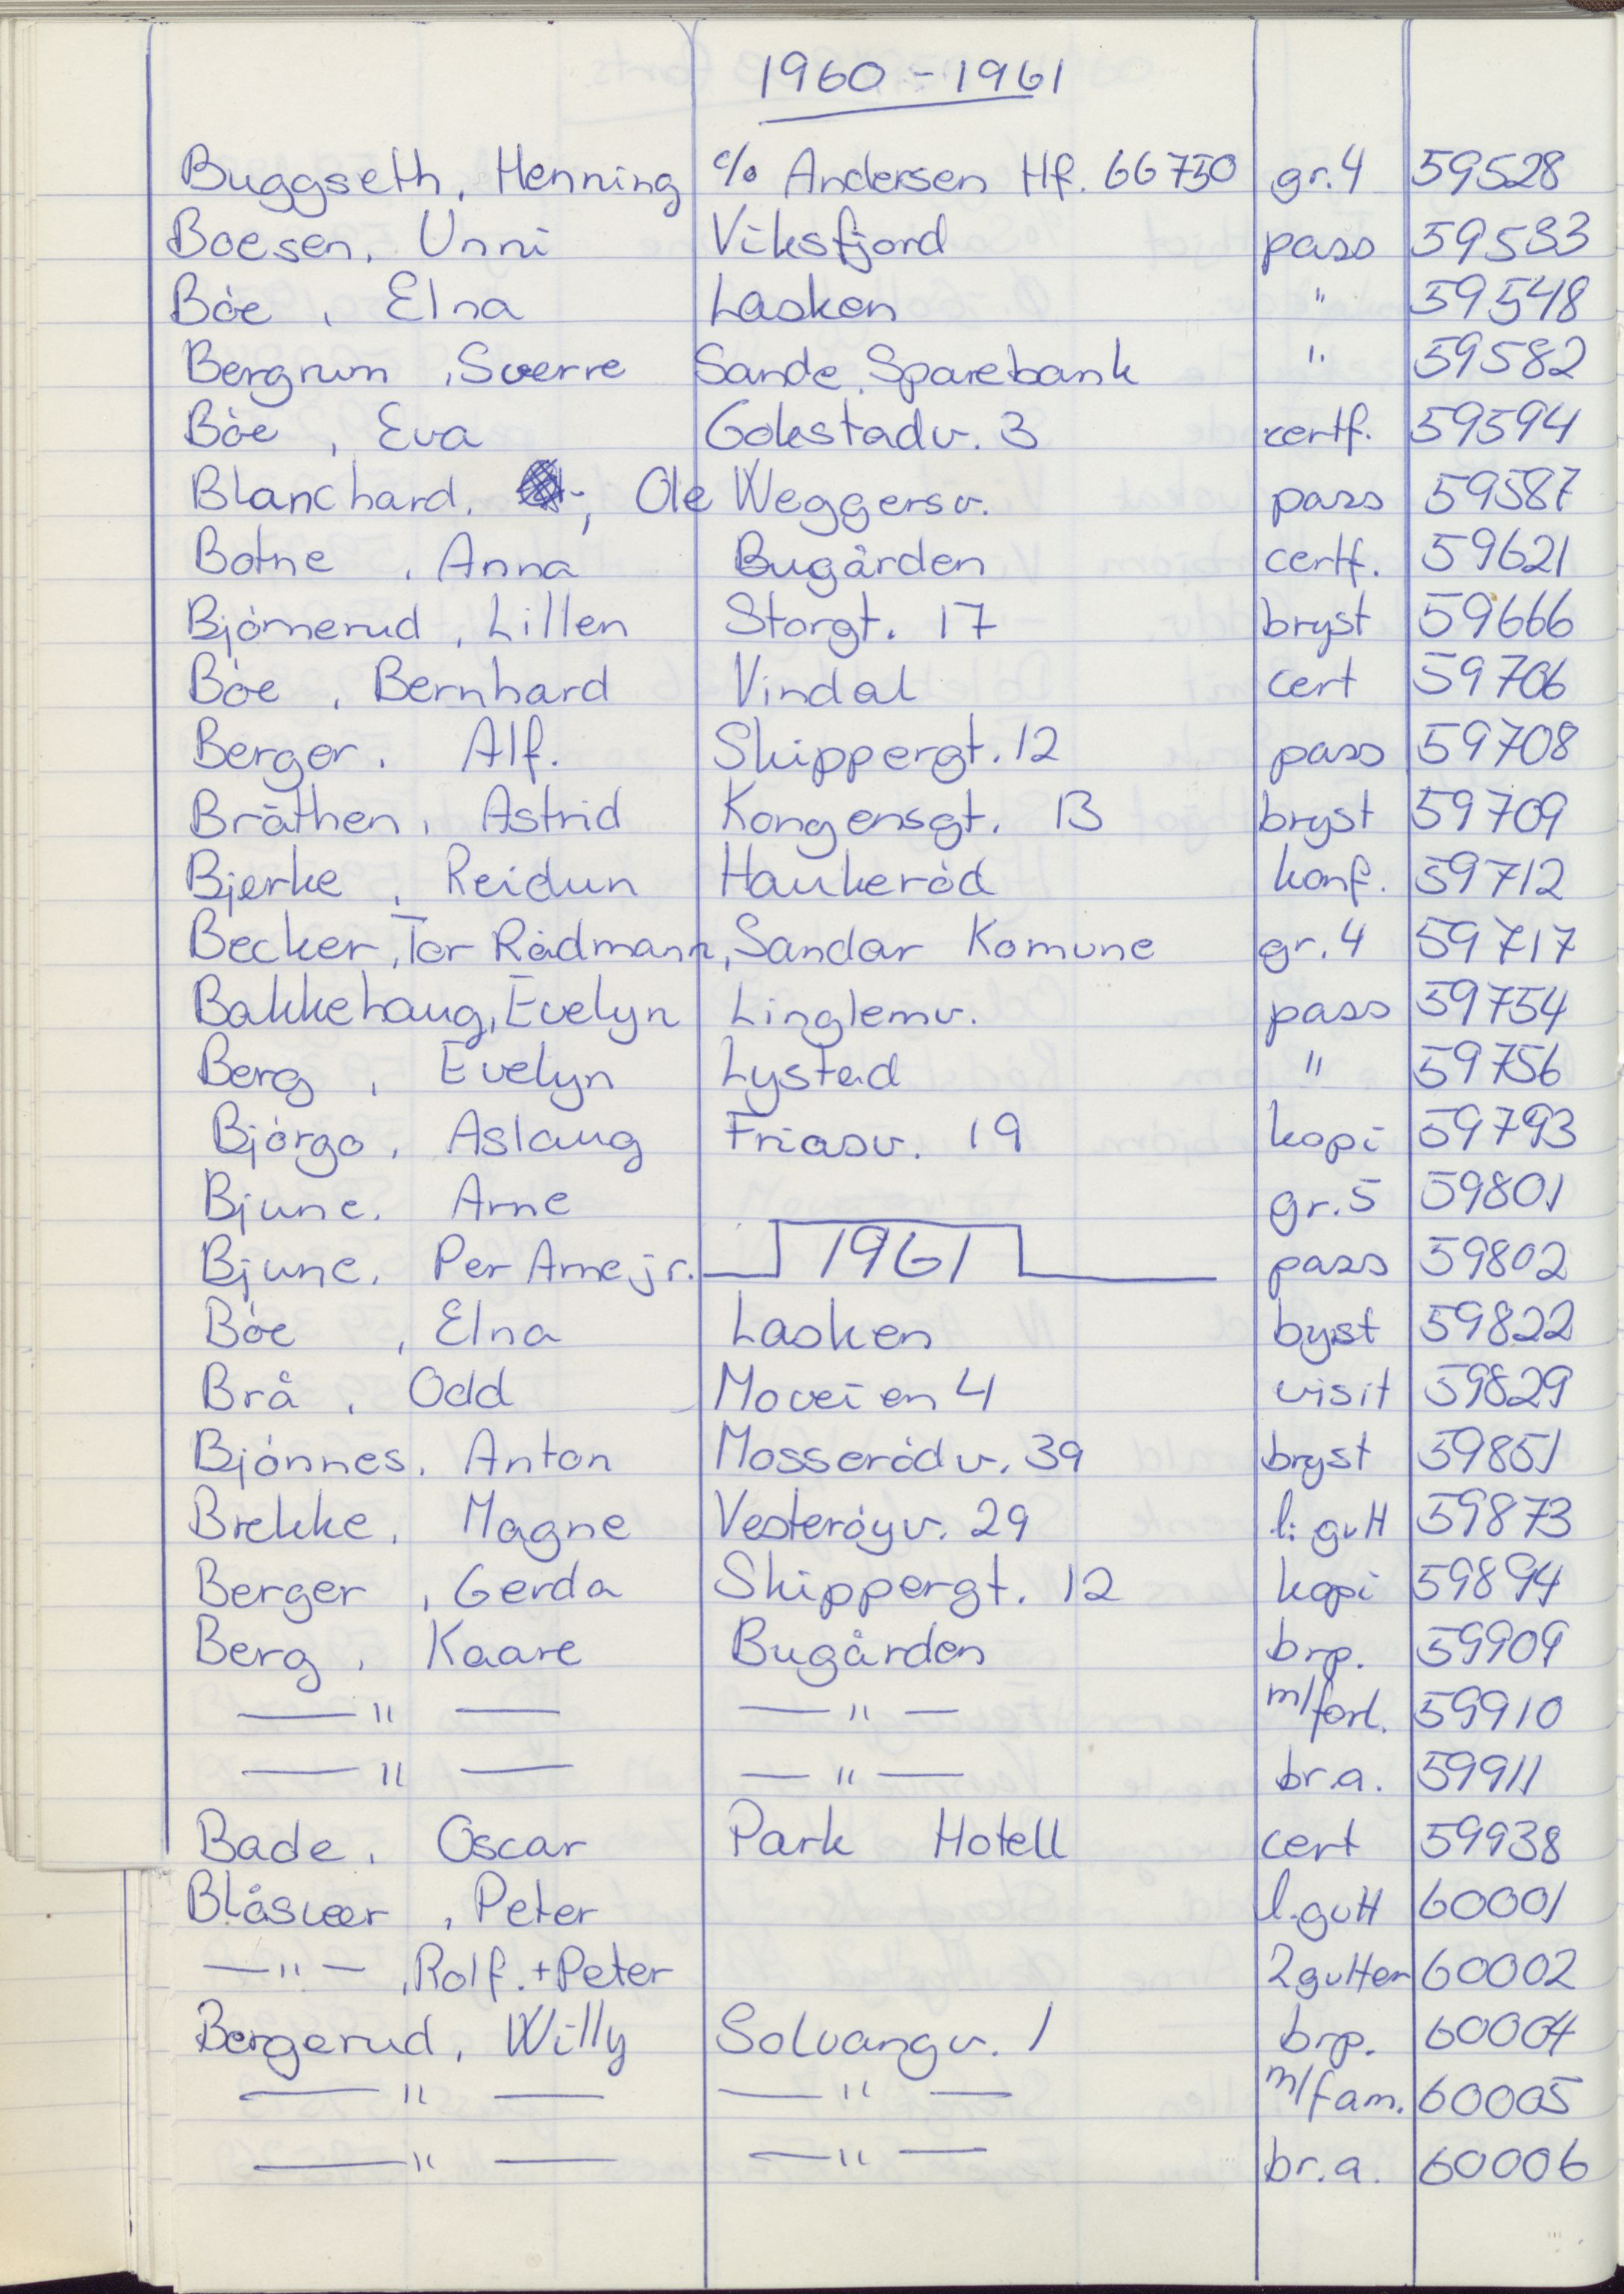 1960 - 1961
Buggseth, Henning c/o Andersen Hf. 66750 gr.4 59528
Boesen, Unni Viksfjord pass 59533
Bøe, Elna Lasken " 59548
Bergrun, Sverre Sande Sparebank " 59582
Bøe, Eva Gokstadv. 3 certf. 59594
Blanchard, Ole Weggersv. pass 59587
Botne, Anna Bugården certf. 59621
Bjørnerud, Lillen Storgt. 17 bryst 59666
Bøe, Bernhard Vindal cert 59706
Berger, Alf. Skippergt. 12 pass 59708
Bråthen, Astrid Kongensgt. 13 bryst 59709
Bjerke, Reidun Haukerød konf. 59712
Becker, Tor Rådmann, Sandar Komune gr.4 59717
Bakkehaug, Evelyn Linglemv. pass 59754
Berg, Evelyn Lystad " 59756
Bjørgo, Aslaug Friasv. 19 kopi 59793
Bjune, Arne gr.5 59801
Bjune, Per Arne jr. 1961 pass 59802
Bøe, Elna Lasken byst 59822
Brå, Odd Moveien 4 visit 59829
Bjønnes, Anton Mosserødv. 39 bryst 59851
Brekke, Magne Vesterøyv. 29 l. gutt 59873
Berger, Gerda Skippergt. 12 kopi 59894
Berg, Kaare Bugården brp. 59909
— " — — " — m/forl. 59910
— " — — " — br.a. 59911
Bade, Oscar Park Hotell cert 59938
Blåsvær, Peter l.gutt 60001
— " —, Rolf. + Peter 2 gutter 60002
Bergerud, Willy Solvangv. 1 brp. 60004
— " — — " — m/fam. 60005
— " — — " — br.a. 60006